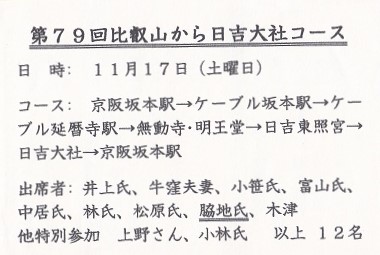 第７９回比叡山から日吉大社コース
日　時：　１１月１７日（土曜日）
コース：　京阪坂本駅→ケーブル坂本駅→ケー
ブル延暦寺駅→無動寺・明王堂→日吉東照宮→
日吉大社→京阪坂本駅
出席者：井上氏、牛窪夫妻、小笹氏、富山氏、
中居氏、林氏、松原氏、脇地氏、木津
他特別参加　上野さん、小林氏　　以上　１２名